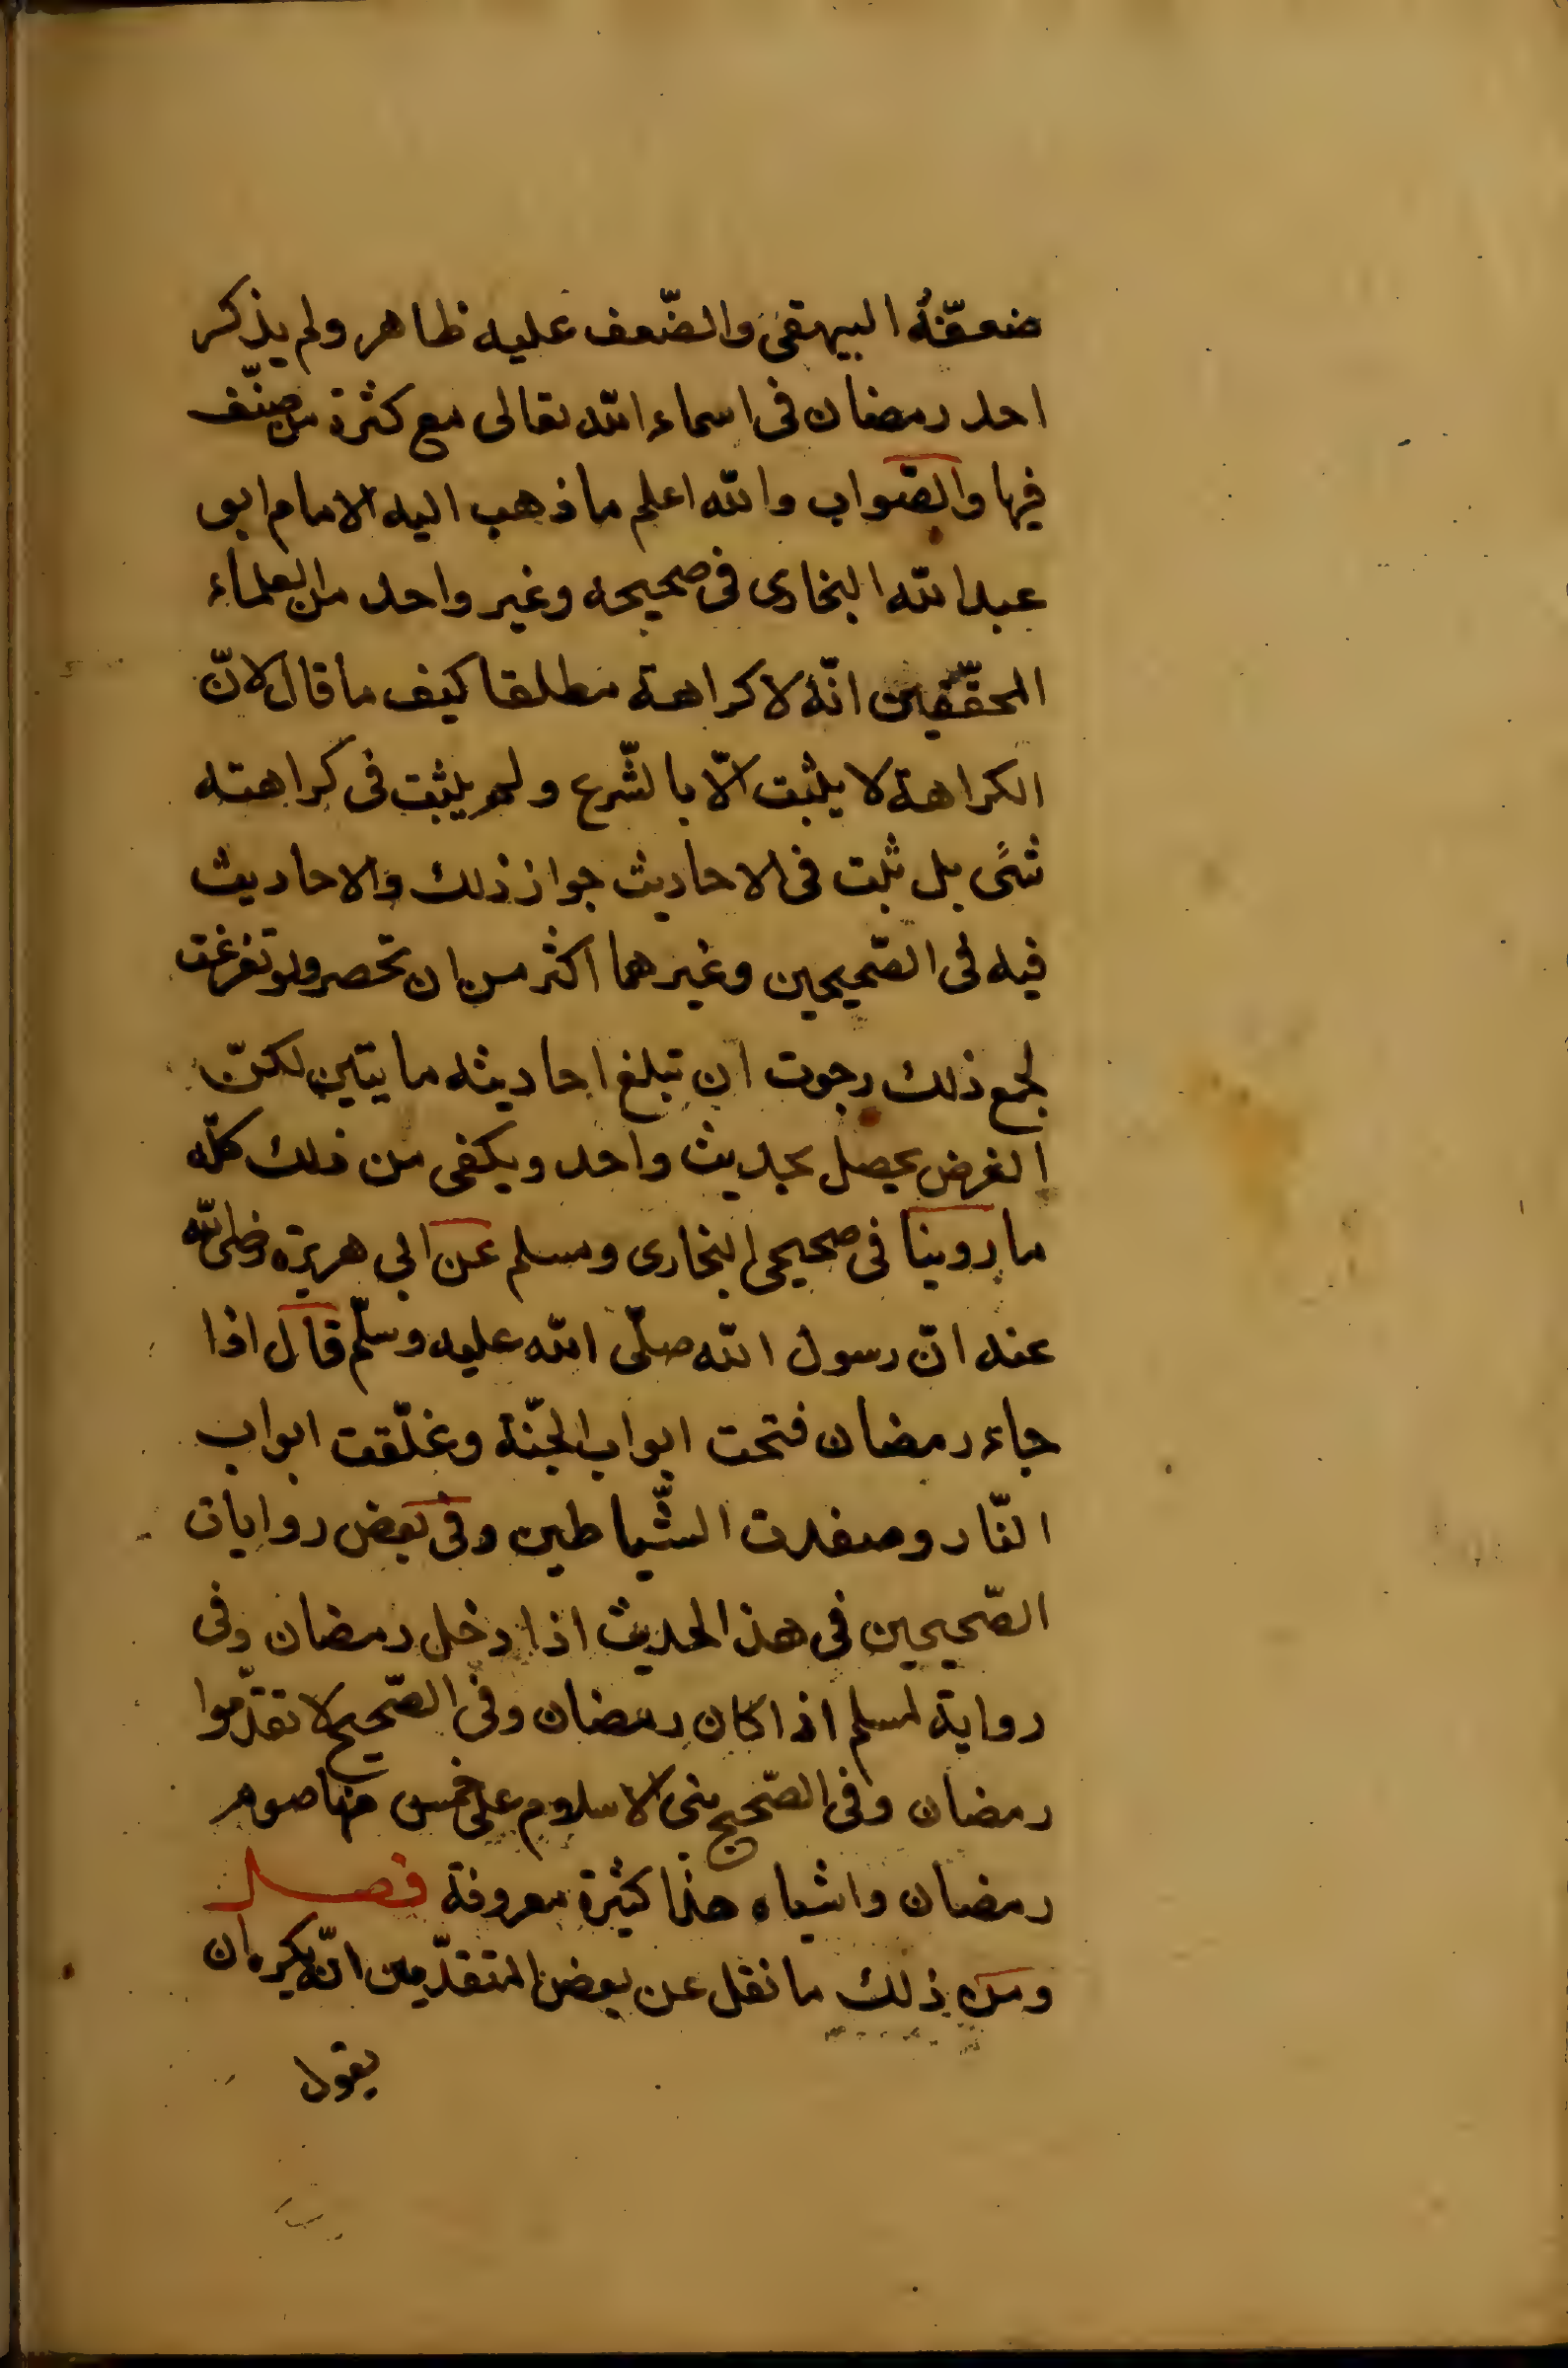 ضعّفه البيهقى والضّعف عليه ظاهر ولم يذكر
احد رمضان فى اسماء الله تعالى مع كثرة من صنّف
فيها والصّواب والله اعلم ما ذهب اليه الامام ابو
عبد الله البخارى فى صحيحه وغير واحد من العلماء
المحقّقين انّه لا كراهة مطلقا كيف ما قال لانّ
الكراهة لا يثبت الّا بالشّرع ولم يثبت فى كراهته
شئ بل ثبت فى الاحاديث جواز ذلك والاحاديث
فيه فى الصّحيحين وغيرهما اكثر من ان تحصر ولو تفرغت
لجمع ذلك رجوت ان تبلغ احاديثه مايتين لكنّ
الغرض يحصل بحديث واحد ويكفى من ذلك كلّه
ما روينا فى صحيحى البخارى ومسلم عن ابى هريرة رضى الله
عنه انّ رسول الله صلّى الله عليه وسلّم قال اذا
جاء رمضان فتحت ابواب الجنّة وغلّقت ابواب
النّار وصفدت الشّياطين وفى بعض روايات
الصّحيحين فى هذا الحديث اذا دخل رمضان وفى
رواية لمسلم اذا كان رمضان وفى الصّحيح لا تقدّموا
رمضان وفى الصّحيح بنى الاسلام على خمس منها صوم
رمضان واشباه هذا كثيرة معروفة فصل
ومن ذلك ما نقل عن بعض المتقدّمين انّه يكره ان
يقول